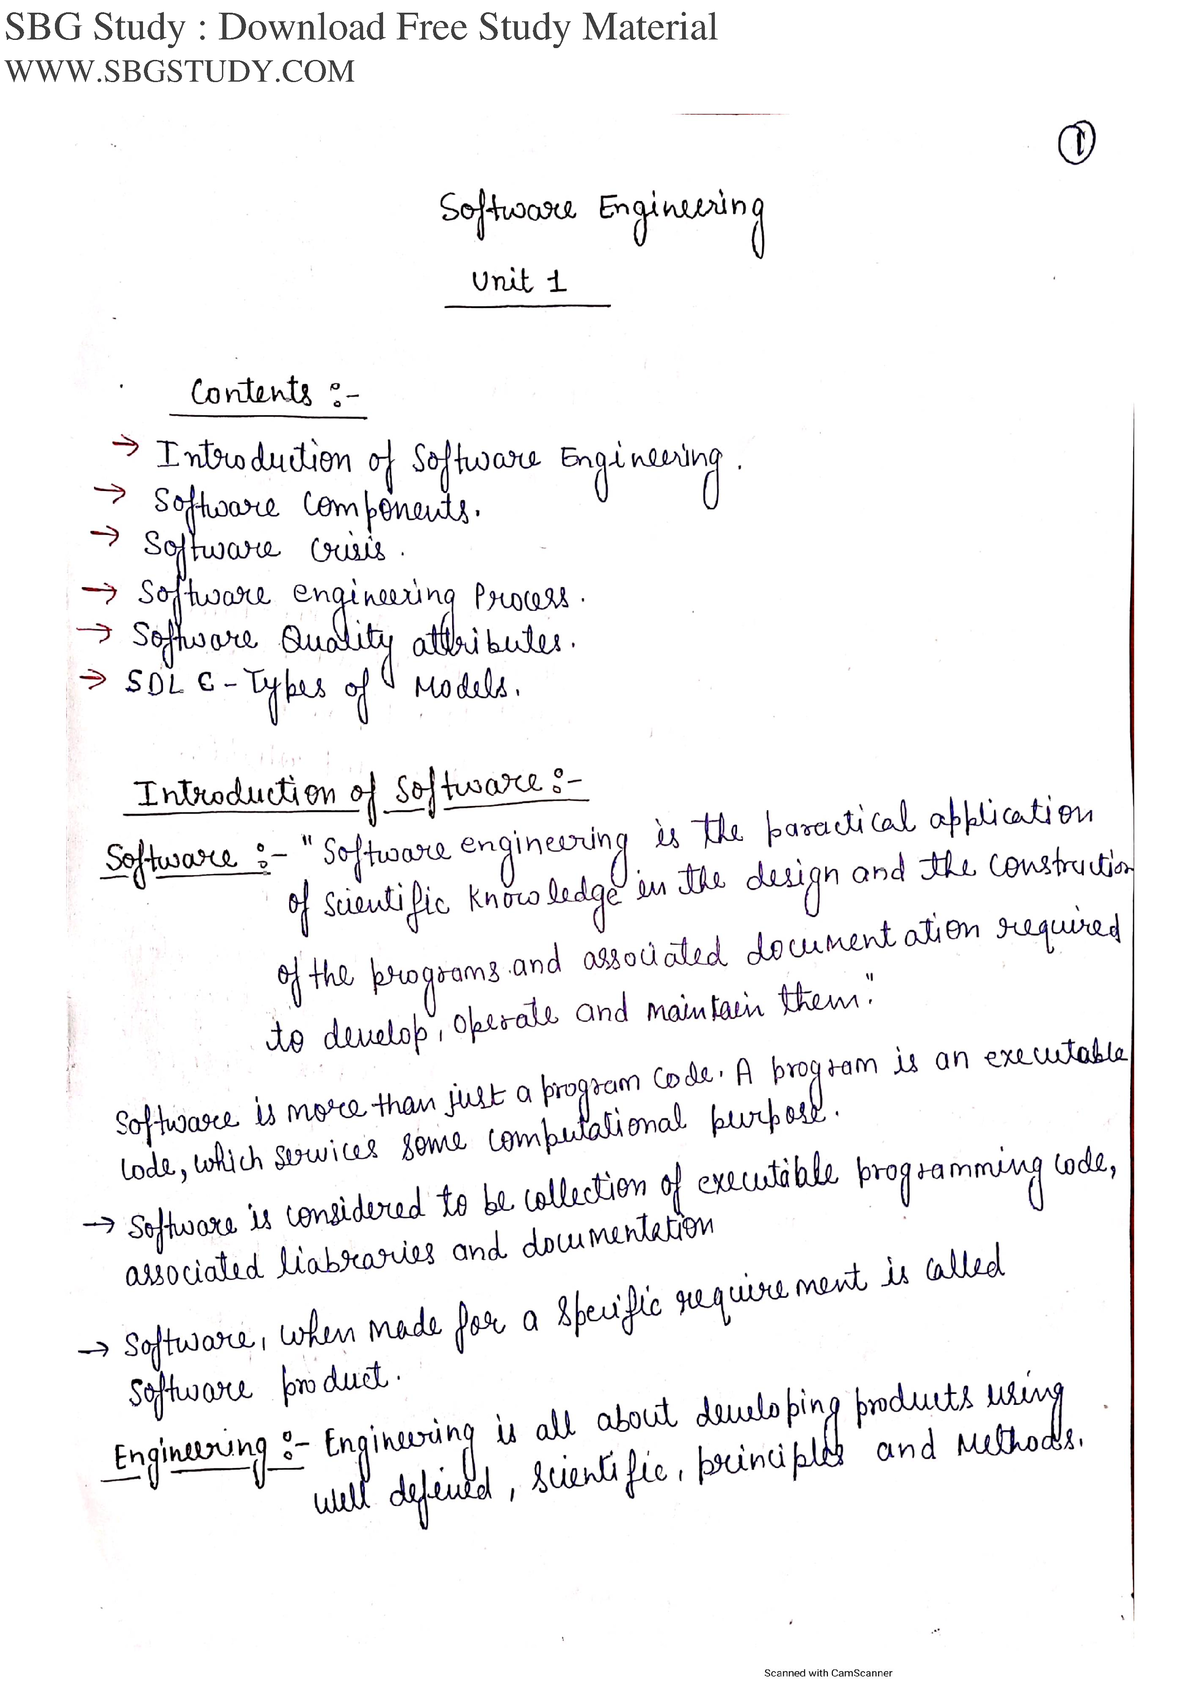 SBG Study : Download Free Study Material
WWW.SBGSTUDY.COM
1
Software Engineering
Unit 1
Contents :-
→ Introduction of Software Engineering.
→ Software Components.
→ Software Crisis.
→ Software engineering Process.
→ Software Quality attributes.
→ SDLC - Types of Models.
Introduction of Software :-
Software :- "Software engineering is the paractical application
of scientific knowledge in the design and the construction
of the programs and associated documentation required
to develop, operate and maintain them."
Software is more than just a program code. A program is an executable
code, which services some computational purpose.
→ Software is considered to be collection of executable programming code,
associated liabraries and documentation
→ Software, when made for a specific requirement is called
software product.
Engineering :- Engineering is all about developing products using
well defined, scientific, principles and Methods.
Scanned with CamScanner